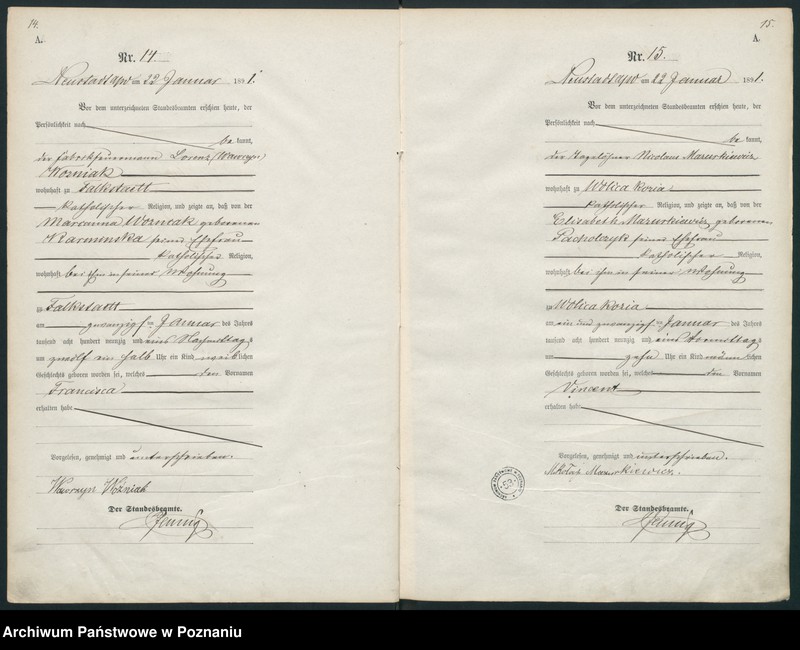 14.
A.
Nr. 14.
Neustadt a/W am 22 Januar 1891.
Vor dem unterzeichneten Standesbeamten erschien heute, der
Persönlichkeit nach
be kannt,
der Lorenz (Wawrzyn)
Wozniak
wohnhaft zu Falkstaett
katholischer Religion, und zeigte an, daß von der
Marcianna Wozniak geborenen
Karminska seiner Ehefrau
katholischer Religion,
wohnhaft bei ihm in seiner Wohnung
zu Falkstaett
am zwanzigsten Januar des Jahres
tausend acht hundert neunzig und eins Nachmittags
um zwölf ein halb Uhr ein Kind weiblichen
Geschlechts geboren worden sei, welches den Vornamen
Francisca
erhalten habe
Vorgelesen, genehmigt und unterschrieben.
Wawrzyn Woźniak
Der Standesbeamte.
15.
A.
Nr. 15.
Neustadt a/W am 22 Januar 1891.
Vor dem unterzeichneten Standesbeamten erschien heute, der
Persönlichkeit nach
be kannt,
der Tagelöhner Nicolaus Mazurkiewicz
wohnhaft zu Wolica kozia
katholischer Religion, und zeigte an, daß von der
Elisabeth Mazurkiewicz, geborenen
Pacholczyk seiner Ehefrau
katholischer Religion,
wohnhaft bei ihm in seiner Wohnung
zu Wolica kozia
am ein und zwanzigsten Januar des Jahres
tausend acht hundert neunzig und eins Vormittags
um zehn Uhr ein Kind männlichen
Geschlechts geboren worden sei, welches den Vornamen
Vincent
erhalten habe
Vorgelesen, genehmigt und unterschrieben.
Mikołaj Mazurkiewicz.
Der Standesbeamte.
Archiwum Państwowe w Poznaniu